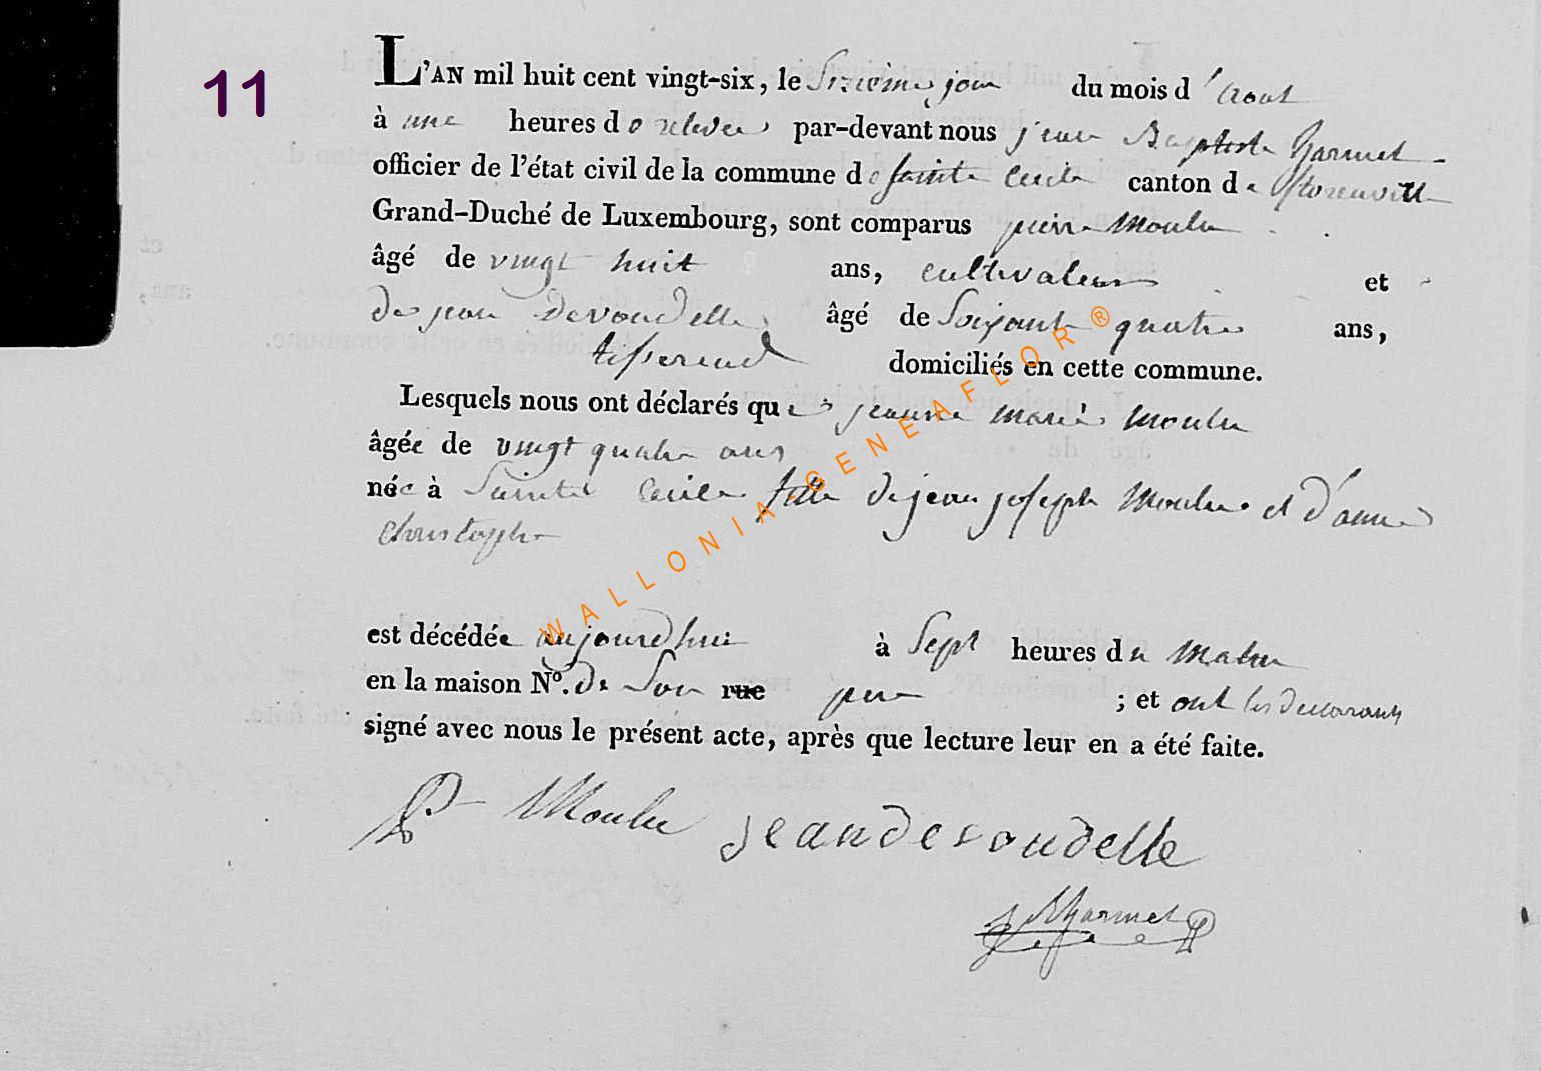 11
L'AN mil huit cent vingt-six, le jour du mois d'aout
à une heures de relevée par-devant nous jean Baptiste harmel
officier de l'état civil de la commune de sainte Cecile canton de florenville
Grand-Duché de Luxembourg, sont comparus pierre Moulu
âgé de vingt huit ans, cultivateur et
de jean Devoudelle âgé de Soixante quatre ans,
tisserand domiciliés en cette commune.
Lesquels nous ont déclarés que jeanne marie moulu
âgée de vingt quatre ans
née à Sainte Cecile fille de jean joseph Moulu et d'anne
christophe
est décédée aujourdhui à Sept heures du Matin
en la maison N°. de Son rue pere ; et ont les declarants
signé avec nous le présent acte, après que lecture leur en a été faite.
P Moulu jeandevoudelle
JBharmel
WALLONIA-GENEAFLOR®